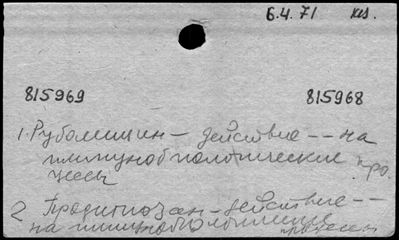 6.4.71
815969 815968
1. Рубомицин - действие -- на
иммунобиологические про
цессы
2 Продигиозан - действие --
на иммунобиологические процессы